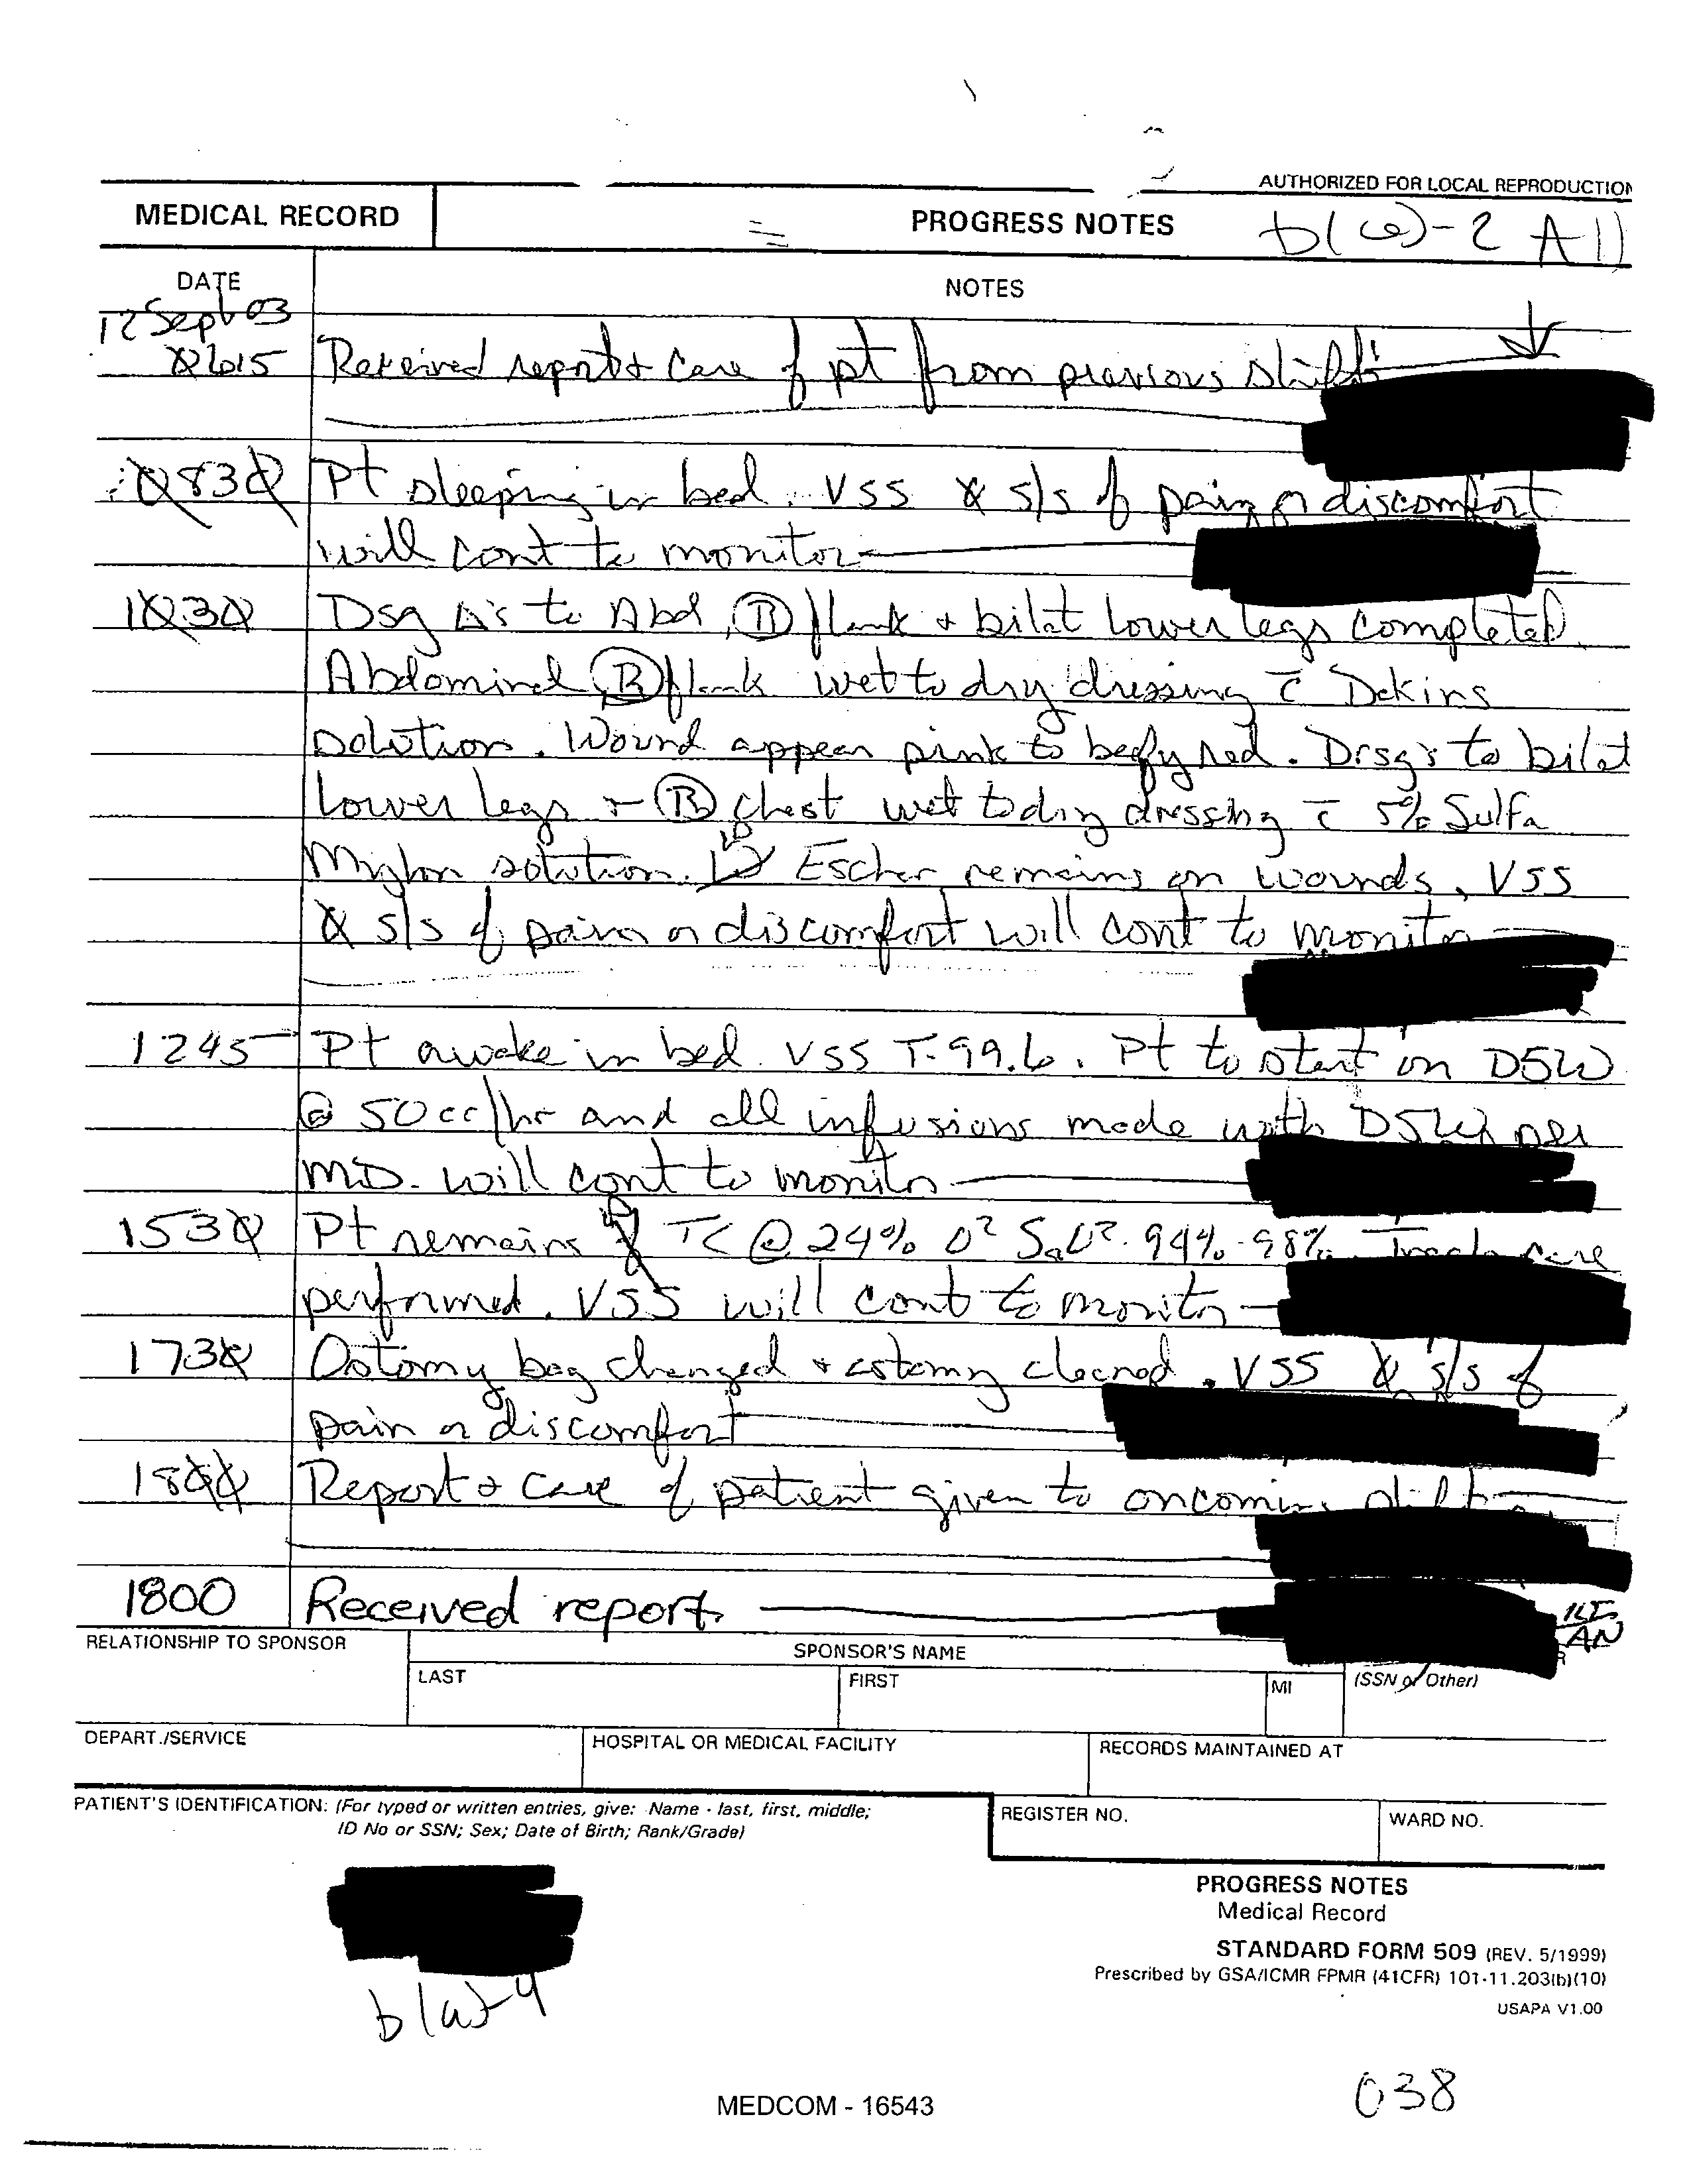 AUTHORIZED FOR LOCAL REPRODUCTION
MEDICAL RECORD PROGRESS NOTES b(6)-2 All
DATE NOTES
12 Sept 03
0615 Received report & care of pt from previous shift
0830 Pt sleeping in bed. VSS Ø s/s of pain or discomfort
will cont to monitor
1030 Dsg Δ's to Abd, Ⓡ flank & bilat lower legs completed.
Abdominal Ⓡ flank wet to dry dressing c̄ Dakins
solution. Wound appear pink to beefy red. Drsg's to bilat
lower legs + Ⓡ chest wet to dry dressing c̄ 5% Sulfa
Mylon solution. Escher remains on wounds, VSS
Ø s/s of pain or discomfort will cont to monitor
1245 Pt awake in bed. VSS T-99.6. Pt to start on D5W
@ 50cc/hr and all infusions made with D5W per
MD. will cont to monitor
1530 Pt remains TC @ 24% O² SaO² 94%-98%. Trach care
performed. VSS will cont to monitor
1730 Ostomy bag changed & ostomy cleaned. VSS Ø s/s of
pain or discomfort
1800 Report & care of patient given to oncoming shift
1800 Received report. 1LT
AN
RELATIONSHIP TO SPONSOR SPONSOR'S NAME
LAST FIRST MI (SSN or Other)
DEPART./SERVICE HOSPITAL OR MEDICAL FACILITY RECORDS MAINTAINED AT
PATIENT'S IDENTIFICATION: (For typed or written entries, give: Name - last, first, middle;
ID No or SSN; Sex; Date of Birth; Rank/Grade)
REGISTER NO. WARD NO.
PROGRESS NOTES
Medical Record
STANDARD FORM 509 (REV. 5/1999)
Prescribed by GSA/ICMR FPMR (41CFR) 101-11.203(b)(10)
USAPA V1.00
b(6)-4
038
MEDCOM - 16543